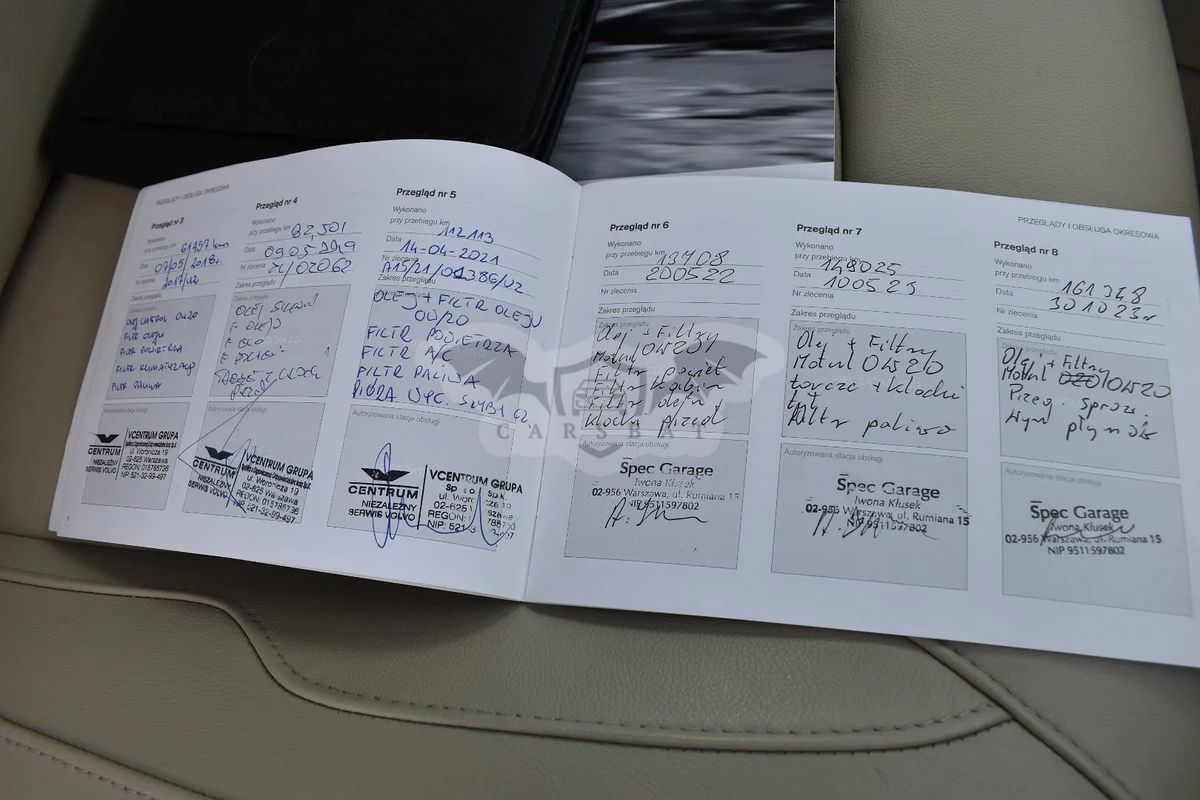 PRZEGLĄDY I OBSŁUGA OKRESOWA
Przegląd nr 3
Wykonano
przy przebiegu km 61957 km
Data 07/05/2018r.
Nr zlecenia 2017/U2
Zakres przeglądu
OLEJ CASTROL 0W20
FILTR OLEJU
FILTR POWIETRZA
FILTR KLIMATYZACJI
FILTR PALIWA
Autoryzowana stacja obsługi
CENTRUM
NIEZALEŻNY
SERWIS VOLVO
VCENTRUM GRUPA
ul. Woronicza 19
02-625 Warszawa
REGON: 015785736
NIP: 521-32-99-497
Przegląd nr 4
Wykonano
przy przebiegu km 82,501
Data 09.05.2019
Nr zlecenia
Zakres przeglądu
F OLEJU
Autoryzowana stacja obsługi
CENTRUM
NIEZALEŻNY
SERWIS VOLVO
VCENTRUM GRUPA
ul. Woronicza 19
02-625 Warszawa
REGON: 015785736
NIP: 521-32-99-497
Przegląd nr 5
Wykonano
przy przebiegu km 112.113
Data 14-04-2021
Nr zlecenia A15/21/01386/U2
Zakres przeglądu
OLEJ + FILTR OLEJU
0W/20
FILTR POWIETRZA
FILTR A/C
FILTR PALIWA
PIÓRA WYC. SZYBY CZ.
Autoryzowana stacja obsługi
CENTRUM
NIEZALEŻNY
SERWIS VOLVO
VCENTRUM GRUPA
Sp. z o.o. Sp.k.
02-625
REGON:
NIP: 521
Przegląd nr 6
Wykonano
przy przebiegu km 13408
Data 200522
Nr zlecenia
Zakres przeglądu
Olej + Filtry
Motul 0W20
Filtr powiet
Filtr Kabin
Filtr oleju
Klocki przód
Autoryzowana stacja obsługi
Spec Garage
Iwona Kłusek
02-956 Warszawa, ul. Rumiana 15
NIP 9511597802
PRZEGLĄDY I OBSŁUGA OKRESOWA
Przegląd nr 7
Wykonano
przy przebiegu km 148025
Data 100523
Nr zlecenia
Zakres przeglądu
Olej + Filtry
Motul 0W20
tarcze + klocki
tył
Filtr paliwa
Autoryzowana stacja obsługi
Spec Garage
Iwona Kłusek
02-956 Warszawa, ul. Rumiana 15
NIP 9511597802
Przegląd nr 8
Wykonano
przy przebiegu km 161348
Data 301023r
Nr zlecenia
Zakres przeglądu
Olej + Filtry
Motul 0W20
Przeg Spraż.
Wym płyn
Autoryzowana stacja obsługi
Spec Garage
Iwona Kłusek
02-956 Warszawa, ul. Rumiana 15
NIP 9511597802
CARSBAT